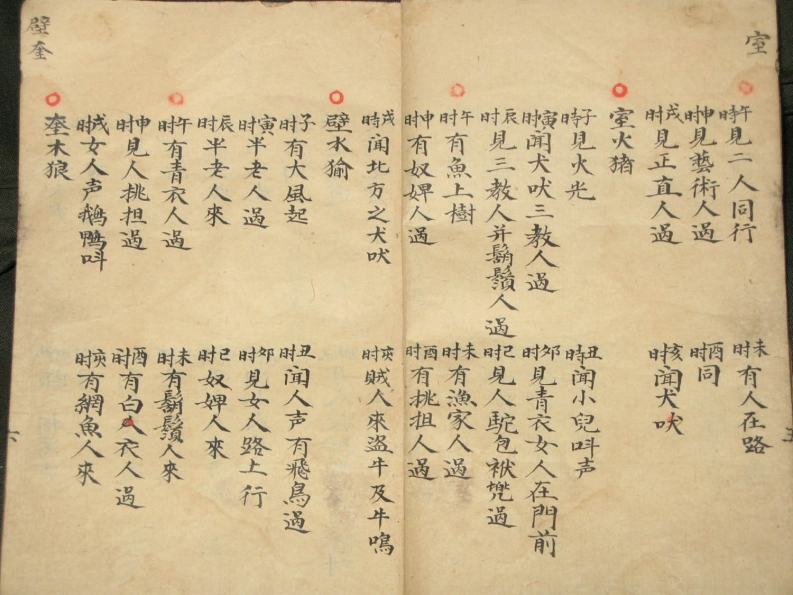 室
午时見二人同行
未时有人在路
申时見藝術人過
酉时同
戌时見正直人過
亥时聞犬吠
室火猪
子時見火光
丑時聞小兒呌声
寅时聞犬吠三教人過
夘时見青衣女人在門前
辰时見三教人并鬍鬚人過
巳时見人駝包袱
午时有魚上樹
未时有漁家人過
申时有奴婢人過
酉时有挑担人過
戌時聞北方之犬吠
亥时賊人來盜牛及牛鳴
壁水㺄
子时有大風起
丑时聞人声有飛鳥過
寅时半老人過
夘时見女人路上行
辰时半老人來
巳时奴婢人來
午时有青衣人過
未时有鬍鬚人來
申时見人挑担過
酉时有白衣人過
戌时女人声鵝鴨呌
亥时有網魚人來
奎木狼
壁奎
五
六